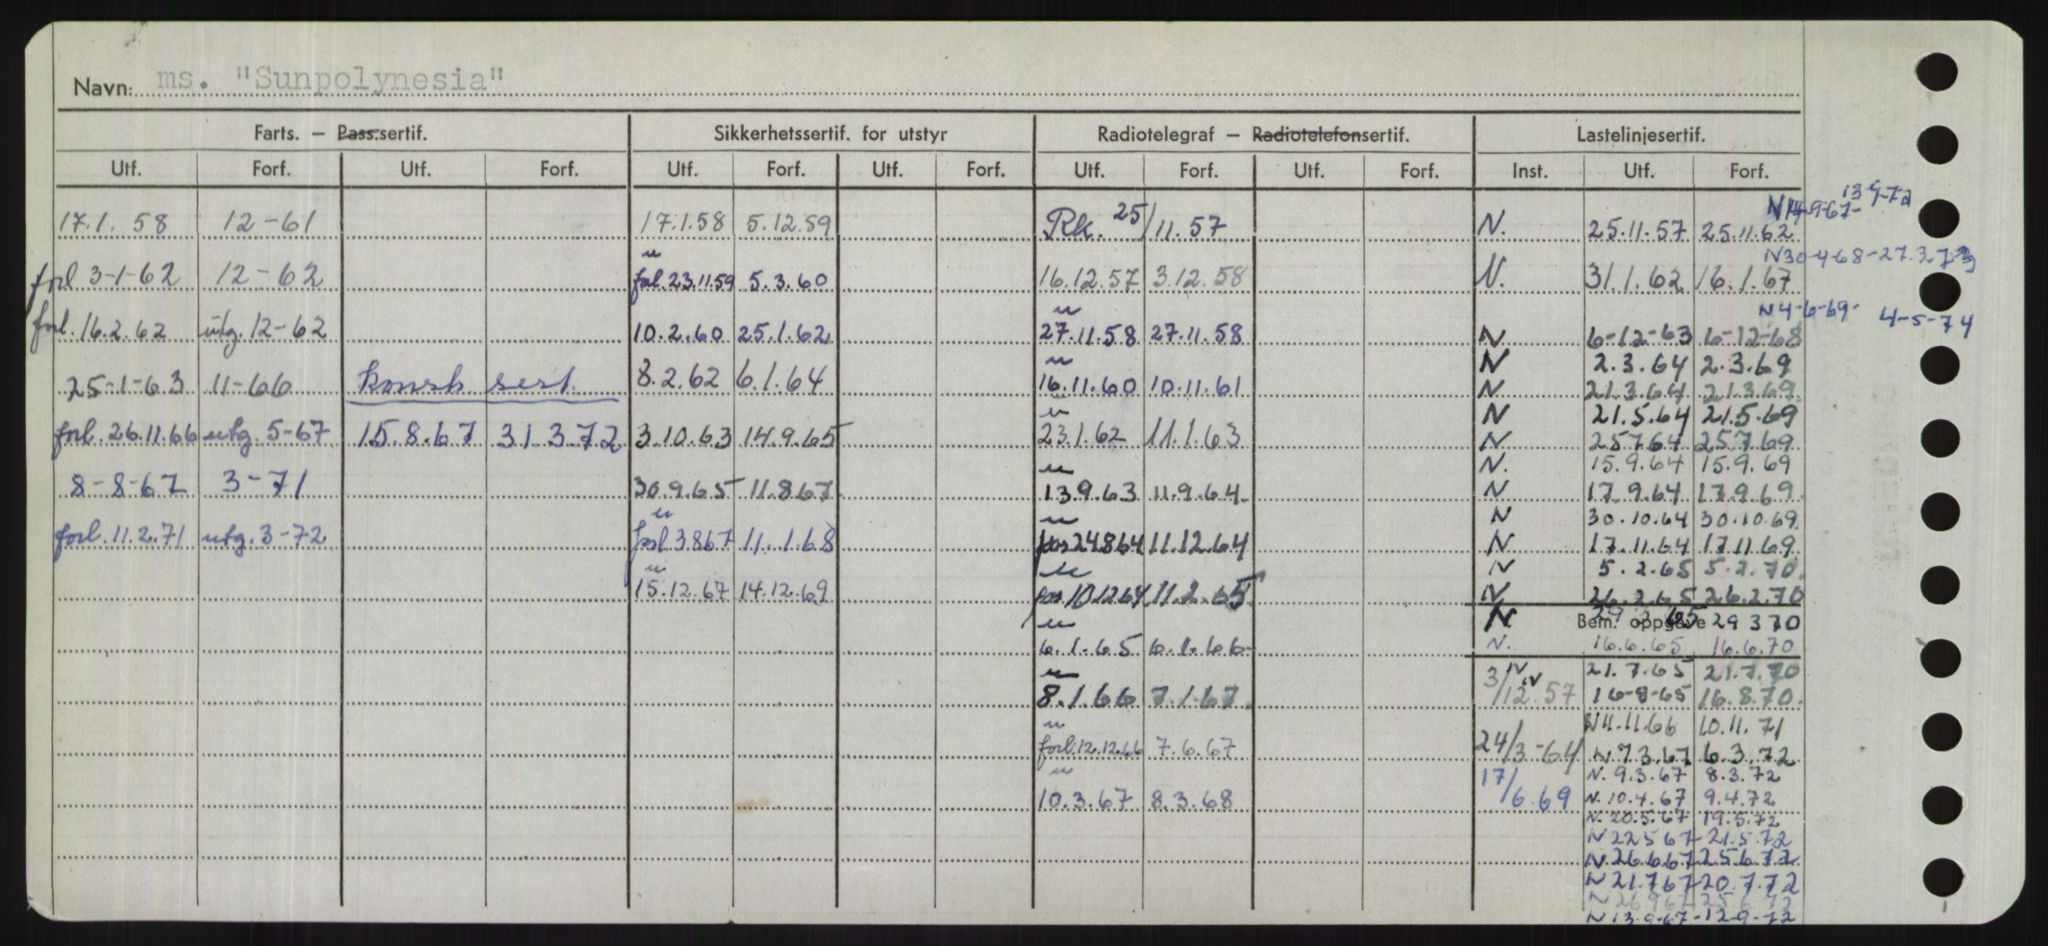 Navn: ms. "Sunpolynesia"
Farts. – Pass.sertif. Sikkerhetssertif. for utstyr Radiotelegraf – Radiotelefonsertif. Lastelinjesertif.
Utf. Forf. Utf. Forf. Utf. Forf. Utf. Forf. Utf. Forf. Utf. Forf. Inst. Utf. Forf.
13-9-72
N14-9-67-
17.1.58 12-61 17.1.58 5.12.59 Rk. 25/11.57 N. 25.11.57 25.11.62
N30-4-68-27.3.73
forl 3-1-62 12-62 forl. 23.11.59 5.3.60 16.12.57 3.12.58 N. 31.1.62 16.1.67
N4-6-69- 4-5-74
forl. 16.2.62 utg. 12-62 10.2.60 25.1.62 27.11.58 27.11.58 N 6-12-63 6-12-68
N 2.3.64 2.3.69
25-1-63 11-66 konstr. sert. 8.2.62 6.1.64 16.11.60 10.11.61 N 21.3.64 21.3.69
N 21.5.64 21.5.69
forl. 26.11.66 utg. 5-67 15.8.67 31.3.72 3.10.63 14.9.65 23.1.62 11.1.63 N 25.7.64 25.7.69
N. 15.9.64 15.9.69
8-8-67 3-71 30.9.65 11.8.67 13.9.63 11.9.64 N 17.9.64 17.9.69
N 30.10.64 30.10.69
forl. 11.2.71 utg. 3-72 forl 3.8.67 11.1.68 24.8.64 11.12.64 N 17.11.64 17.11.69
N 5.2.65 5.2.70
15.12.67 14.12.69 10.12.64 11.2.65 N 26.2.65 26.2.70
Bem. oppgave
N 29.3.65 29.3.70
6.1.65 6.1.66 N. 16.6.65 16.6.70
N 21.7.65 21.7.70
8.1.66 7.1.67 3/12.57 N 16-8-65 16.8.70
N 11.11.66 10.11.71
forl. 12.12.66 7.6.67 24/3-64 N 7.3.67 6.3.72
17/6.69 N. 9.3.67 8.3.72
10.3.67 8.3.68 N. 10.4.67 9.4.72
N. 20.5.67 19.5.72
N 22.5.67-21.5.72
N 26.6.67 25.6.72
N 21.7.67-20.7.72
N 13.9.67-12-9-72